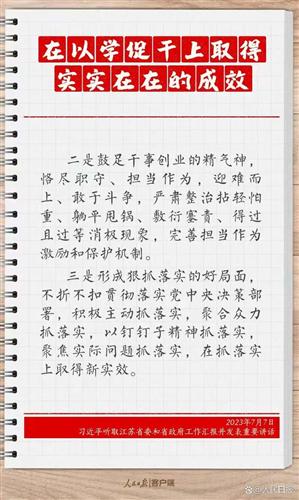 在以学促干上取得
实实在在的成效
二是鼓足干事创业的精气神，
恪尽职守、担当作为，迎难而
上、敢于斗争，严肃整治拈轻怕
重、躺平甩锅、敷衍塞责、得过
且过等消极现象，完善担当作为
激励和保护机制。
三是形成狠抓落实的好局面，
不折不扣贯彻落实党中央决策部
署，积极主动抓落实，聚合众力
抓落实，以钉钉子精神抓落实，
聚焦实际问题抓落实，在抓落实
上取得新实效。
2023年7月7日
习近平听取江苏省委和省政府工作汇报并发表重要讲话
人民日报|客户端
@人民日报